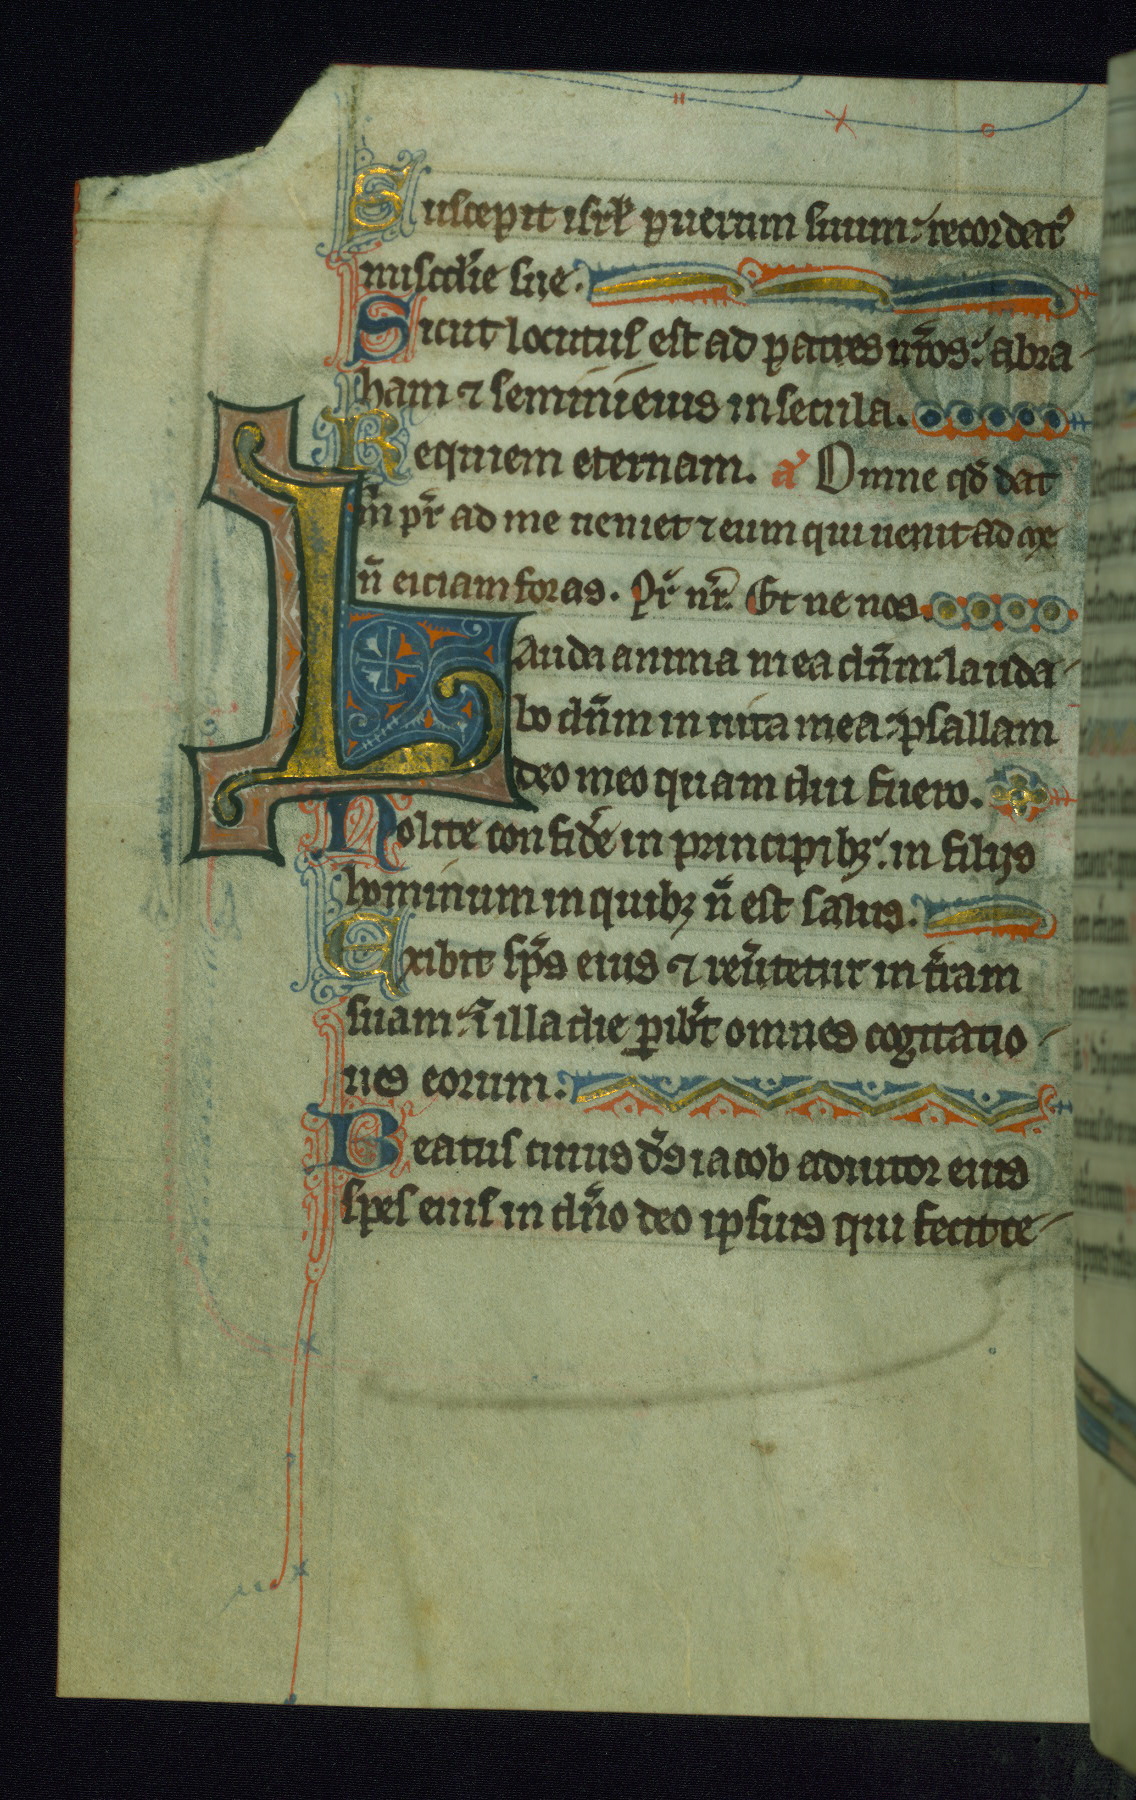 Suscepit isrl puerum suum: recordat᷒
misc̄die sue.
Sicut locutus est ad patres nr̄os: abra-
ham ⁊ semini eius in secula.
Requiem eternam. a Omne qd̄ dat
m pr̄ ad me ueniet ⁊ eum qui uenit ad me
n̄ eiciam foras. Pr̄ nr̄. Et ne nos.
Lauda anima mea dn̄m: lauda-
bo dn̄m in uita mea: psallam
deo meo quam diu fuero.
Nolite confide in principibꝫ: in filijs
hominum in quibꝫ n̄ est salus.
Exibit sp̄s eius ⁊ reu̓tetur in tr̄am
suam: ī illa die ꝑibt̄ omnes cogitatio-
nes eorum.
Beatus cuius ds̄ iacob adiutor eius
spes eius in dn̄o deo ipsius qui fecit ce-